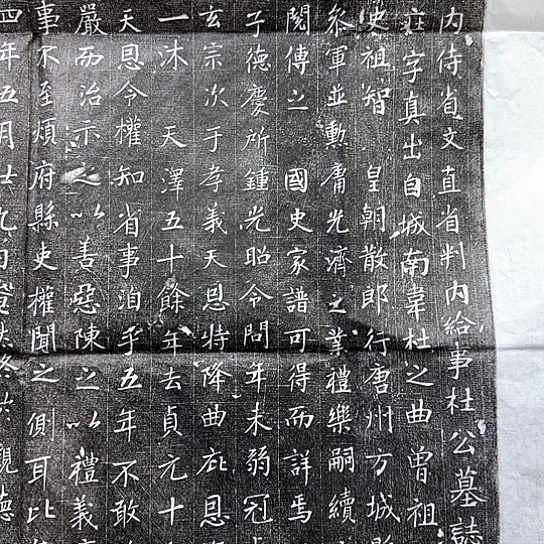 内侍省文直省判内給事杜公墓誌
字真出自城南韋杜之曲曾祖
史祖智 皇朝散郎行唐州方城縣
參軍並勳庸光濟之業禮樂嗣續
閥傳之 國史家譜可得而詳焉
子德慶所鍾光昭令問年未弱冠
玄宗次于孝義天恩特降曲庇恩
一沐 天澤五十餘年去貞元十
天恩令權知省事洎乎五年不敢
嚴而治示之以善惡陳之以禮義
事不至煩府縣吏權聞之側耳比
四年五月廿九日 觀德